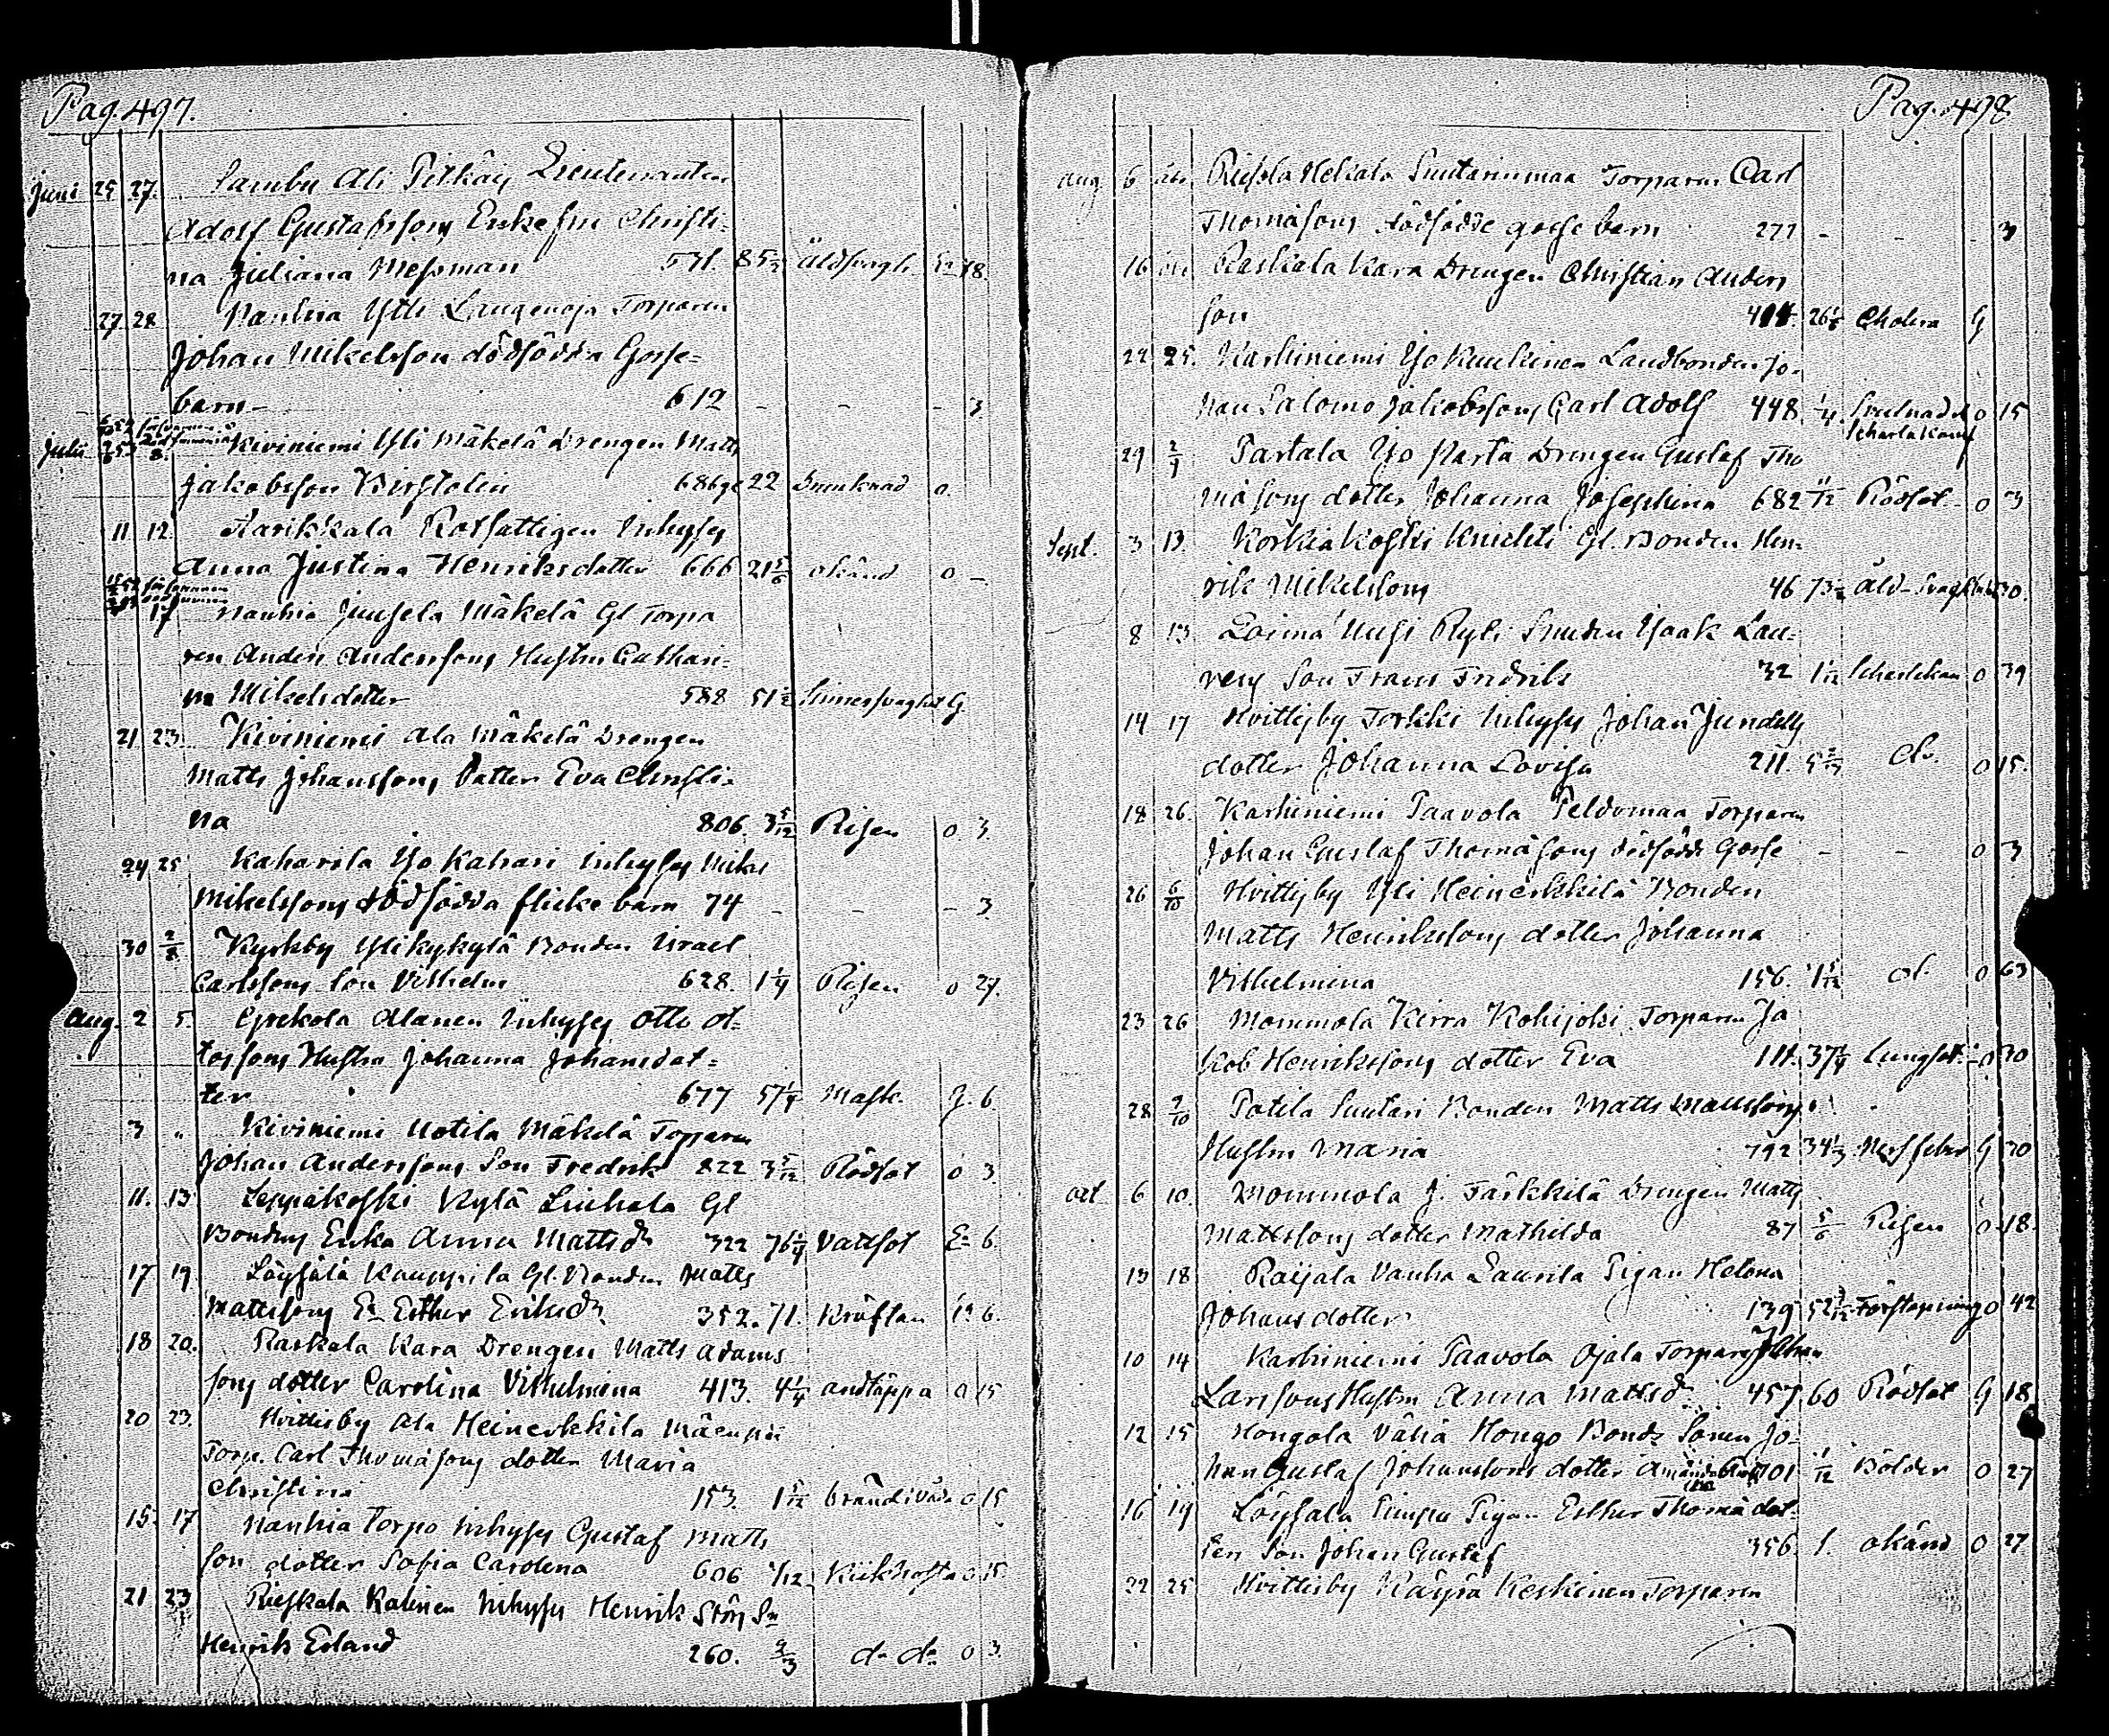 Pag. 497.
Juni 25 27. Sambu Ali Pitkäij Lieutenanten
Adolf Gustafssons Enkefru Christi-
na Juliana Messman 531. 85 Ålds 18.
27 28 Nanhia Ytti Torparen
Johan Mikelsson dödfödda Gosse-
barn - 612 - - - 3
Julii 8. Kiviniemi Yli Mäkelä Drengen Matts
Jakobsson Kirstolin 686 22 Drunknad o.
11 12. Aarikkala Rotfattigen Inhyses
Anna Justina Henriksdotter 666 21 5/6 okänd o -
17 Nanhia Juusela Mäkelä Gl Torpa
ren Anders Anderssons Hustru Cathari-
na Mikelsdotter 588 51 1/2 Sinnessvaghet G
21 23. Kiviniemi Ala Mäkelä Drengen
Matts Johanssons Dotter Eva Christi-
na 806. 3 5/12 Risen o 3.
24 25 Kaharila Yso Kahari Inhyses Mikel
Mikelssons dödfödda flicke barn 74 - - - 3
30 2/8 Kyrkby Ylikykylä Bonden Israel
Carlssons Son Vilhelm 628. 1 1/4 Risen o 27.
Aug. 2 5. Alanen Inhyses Otto Ot-
tossons Hustru Johanna Johansdot-
ter 677 57 1/4 Mask G. 6.
3 " Kiviniemi Uotila Mäkelä Torparen
Johan Anderssons Son Fredrik 822 3 5/12 Rödsot o 3.
11. 13 Leppäkoski Kylä Liukala Gl
Bondens Enka Anna Mattsdr 322 76 1/4 Vattsot E- 6.
17 19. Löysälä Kauppila Gl. Bonden Matts
Mattssons Ea Esther Eriksdr 352. 71. Kräftan 6.
18 20. Raskala Kara Drengen Matts Adams
sons dotter Carolina Vilhelmina 413. 4 1/4 andtäppa o 15
20 23. Hvittisby Ala Heinerkkilä Mäenpää
Torp. Carl Thomassons dotter Maria
Christina 153. 1 5/12 bränd i våda o 15
15. 17 Nanhia Torpo Inhyses Gustaf Matts
son dotter Sofia Carolina 606 /12 Kikhosta o 15
21 23 Rieskala Kalinen Inhyses Henrik Störs Sn
Henrik Erland 260. 2/3 do do o 3.
Pag. 498
Aug. 6 Hekala Suutarinmaa Torparen Carl
Thomassons dödfödde gosse barn 277 - - - 3
16 Raskala Kara Drengen Christian Anders
son 26 1/2 Cholera G
22 25. Karhiniemi Yso Kuukinen Landbonden Jo-
han Salomo Jakobssons Carl Adolf 448 1/4 Svulnad o 15
Scharlakansf
29 2/9 Tartala Yso Parta Drengen Gustaf Tho
massons dotter Johanna Josephina 682 11/12 Rödsot - o 3
Sept. 3 13. Korkiakoski Knichti Gl. Bonden Hen-
rik Mikelsson 46 73 1/2 Åld- svaghet 30.
8 13 Loima Uusi Ryli Smeden Ysaak Lau-
rens Son Frans Fredrik 32 1 1/12 o 39
14 17 Hvittisby Torkki Inhyses Johan Jundells
dotter Johanna Lovisa 211. 5 do. o 15.
18 26. Karhiniemi Paavola Peldomaa Torparen
Johan Gustaf Thomassons dödfödde Gosse - - o 3
26 6/10 Hvittisby Yli Heinerkkilä Bonden
Matts Henrikssons dotter Johanna
Vilhelmina 156. 1 5/12 d- o 63
23 26 Mommola Kirra Kohijoki Torparen Ja
kob Henrikssons dotter Eva 111. 37 1/4 Lungsot - o 30
28 2/10 Potila Suutari Bonden Matts Mattssons
Hustru Maria 792 34 1/3 Nerffeber G 30
Oct 6 10. Mommola J. Tärkkilä Drengen Matts
Mattssons dotter Mathilda 87 5/6 Risen o 18.
13 18 Raijala Vanha Laurila Pigan Helena
Johansdotter 139 52 Förstopning o 42
10 14 Karhiniemi Paavola Ojala Torparen Johan
Larssons Hustru Anna Mattsdr 457 60 Rödsot G 18
12 15 Hongola Vähä Hongo Bonds Sonen Jo-
han Gustaf Johanssons dotter 701 1/12 Bölder o 27
16 19 Löysälä Simpu Pigan Esther Thomædot-
ters Son Johan Gustaf 356. 1. okänd o 27
22 25 Hvittisby Räysä Keskinen Torparen